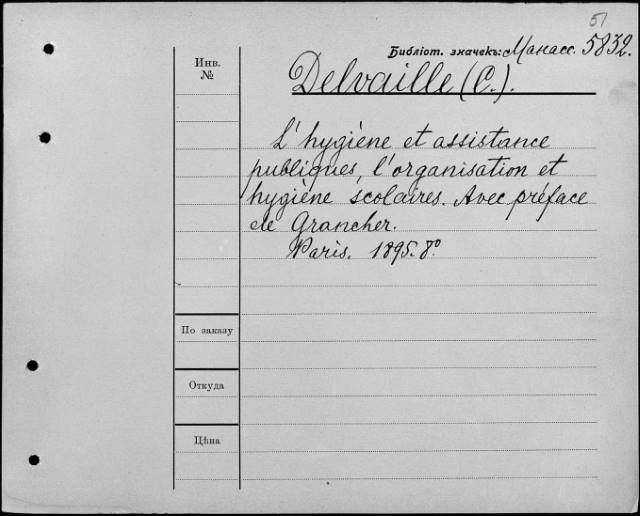 51
Библіот. значекъ: Манасс. 5832.
Инв.
№
Delvaille (C.).
L'hygiène et assistance
publiques, l'organisation et
hygiène scolaires. Avec préface
de Grancher.
Paris. 1895. 8º
По заказу
Откуда
Цѣна